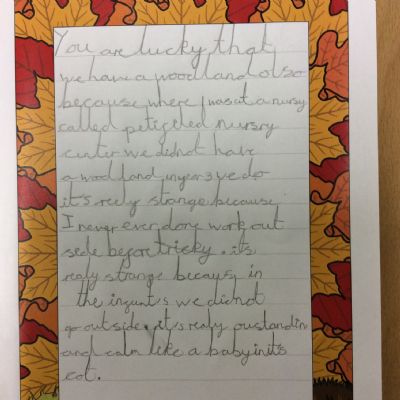 You are lucky that
we have a woodland olso
because where I was at a nursy
called peteyeled nursry
center we didnot have
a woodland inyear 3 we do
it's reely strange because
I never ever done work out
side before tricky. it's
realy strange becausy in
the ingunts we didnot
go outside. it's realy oustandin
and calm like a baby in it's
cot.